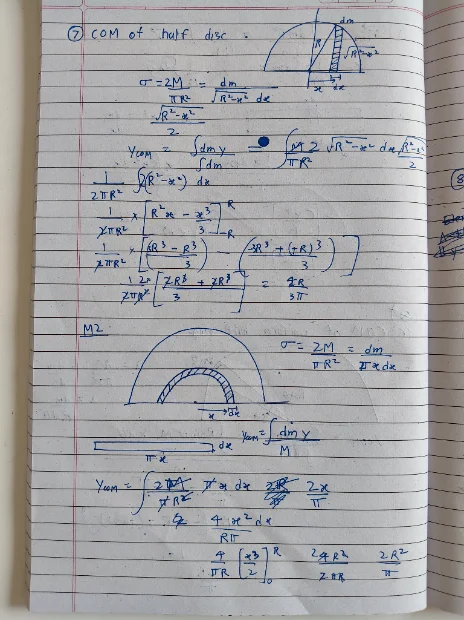 ⑦ COM of half disc :
dm
R
√R²-x²
x dx
σ = 2M/πR² = dm/(√R²-x² dx)
√R²-x²/2
Ycom = ∫dm y/∫dm = ∫ M 2/πR² √R²-x² dx √R²-x²/2
1/2πR² ∫2(R²-x²) dx
1/2πR² × [R²x - x³/3]
R
-R
12/2πR² [2R³ + 2R³/3] = 4R/3π
M2
σ = 2M/πR² = dm/πx dx
x → dx
dx
πx
Ycom = ∫dm y/M
Ycom = ∫ 2M/πR² πx dx 2x/π
4x² dx/Rπ
4/πR [x³/2]
R
0
24R²/2πR 2R²/π